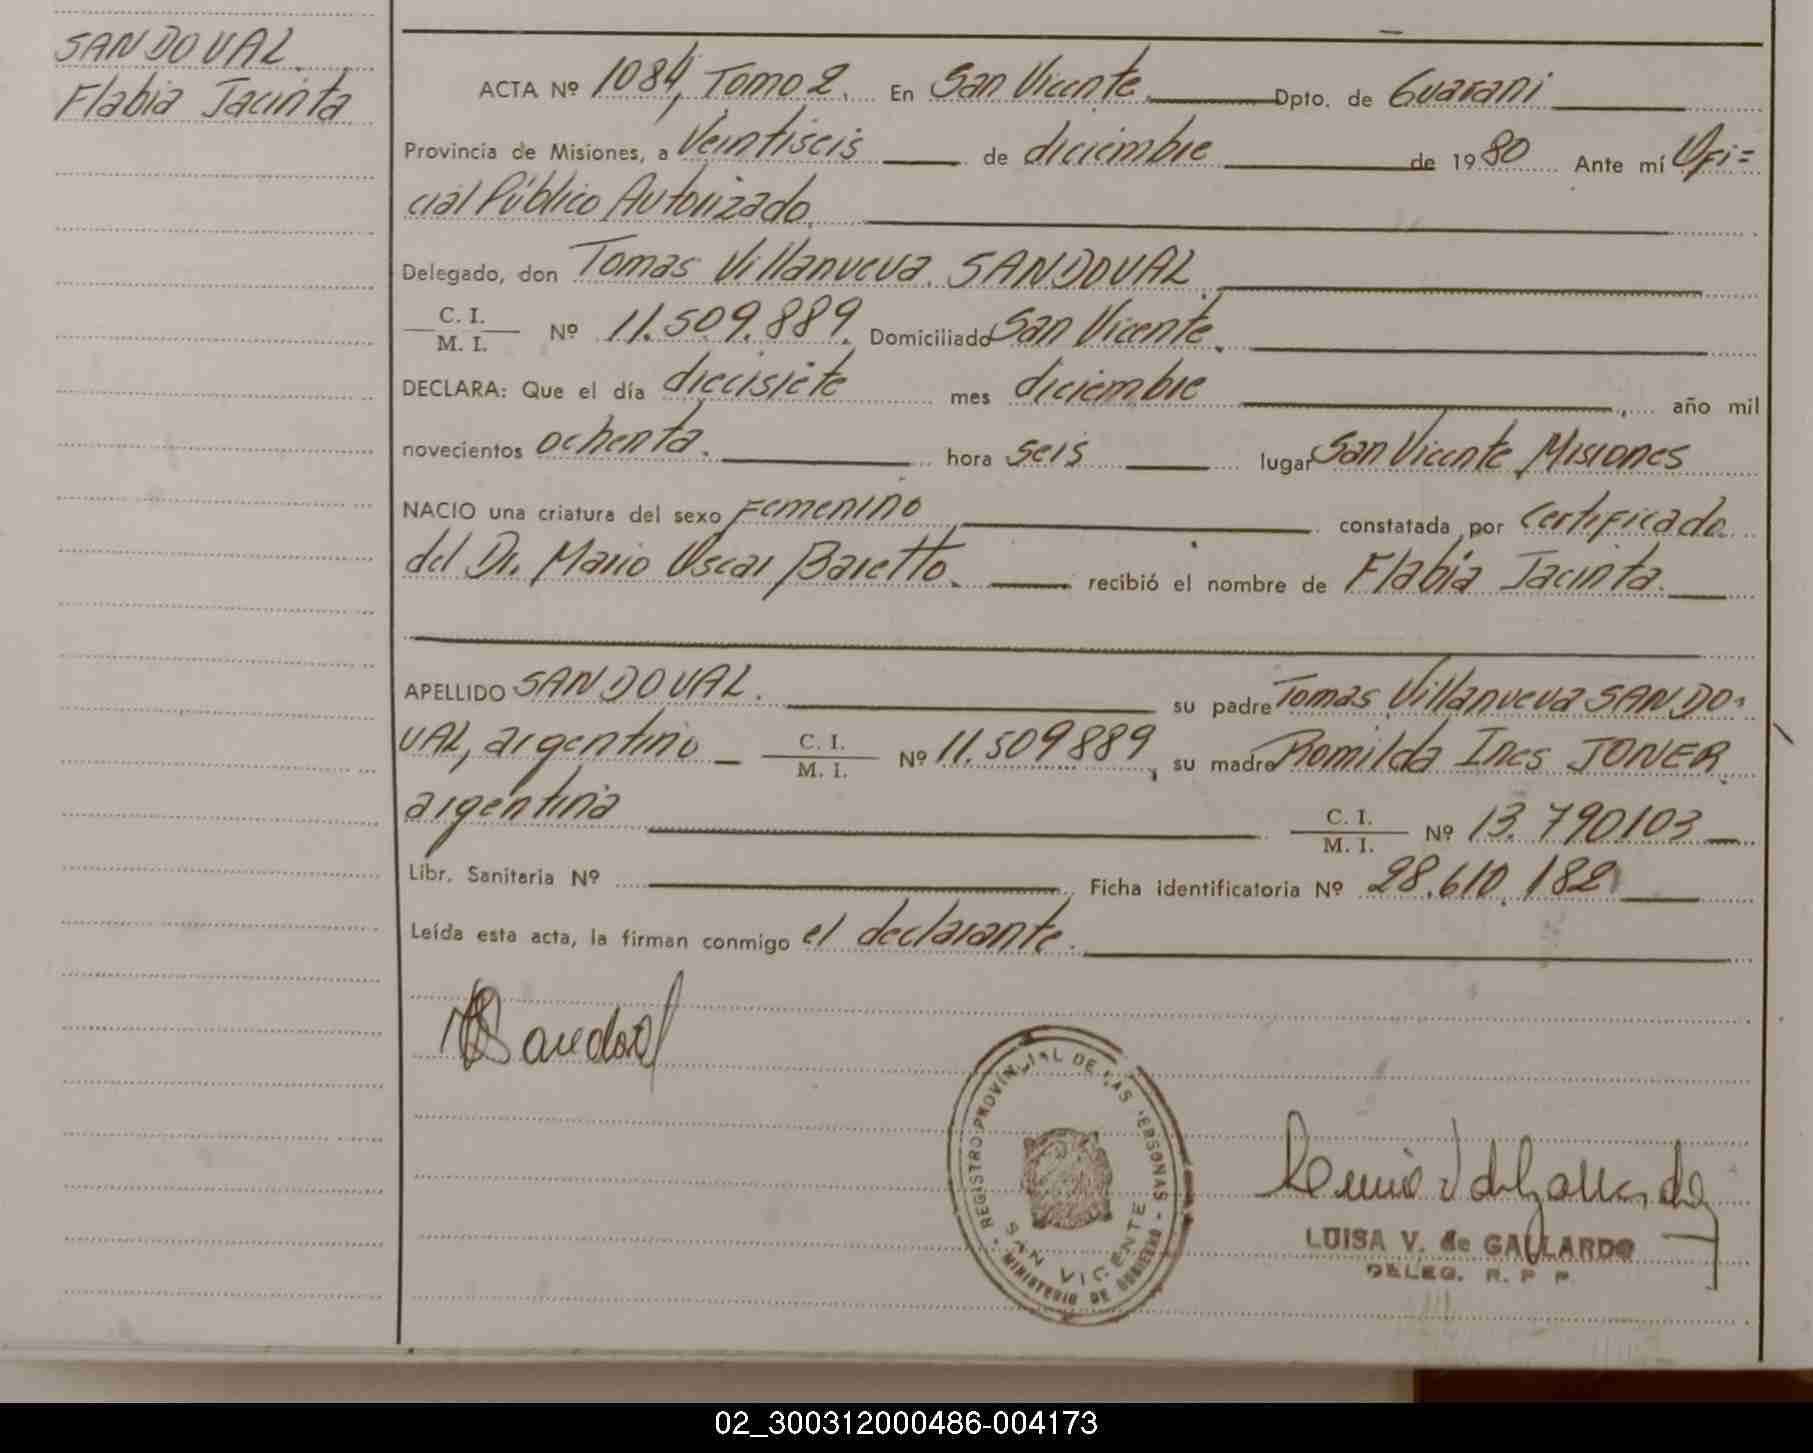 SANDOVAL.
Flabia Jacinta
ACTA Nº 1084, Tomo 2. En San Vicente. Dpto. de Guarani
Provincia de Misiones, a Veintiseis de diciembre de 1980 Ante mí Ofi=
cial Público Autorizado.
Delegado, don Tomas Villanueva SANDOVAL.
C. I.
M. I. Nº 11.509.889. Domiciliado San Vicente.
DECLARA: Que el día diecisiete mes diciembre, año mil
novecientos ochenta. hora seis lugar San Vicente Misiones
NACIO una criatura del sexo Femenino constatada por Certificado
del Dr. Mario Oscar Baretto. recibió el nombre de Flabia Jacinta.
APELLIDO SANDOVAL. su padre Tomas Villanueva SANDO-
VAL, argentino C. I. M. I. Nº 11.509889, su madre Romilda Ines JONER
argentina C. I. M. I. Nº 13.790103
Libr. Sanitaria Nº Ficha identificatoria Nº 28.610.182
Leída esta acta, la firman conmigo el declarante.
Sandoval
REGISTRO PROVINCIAL DE LAS PERSONAS
SAN VICENTE
MINISTERIO DE GOBIERNO
LUISA V. de GALLARDO
DELEG. R. P. P.
02_300312000486-004173